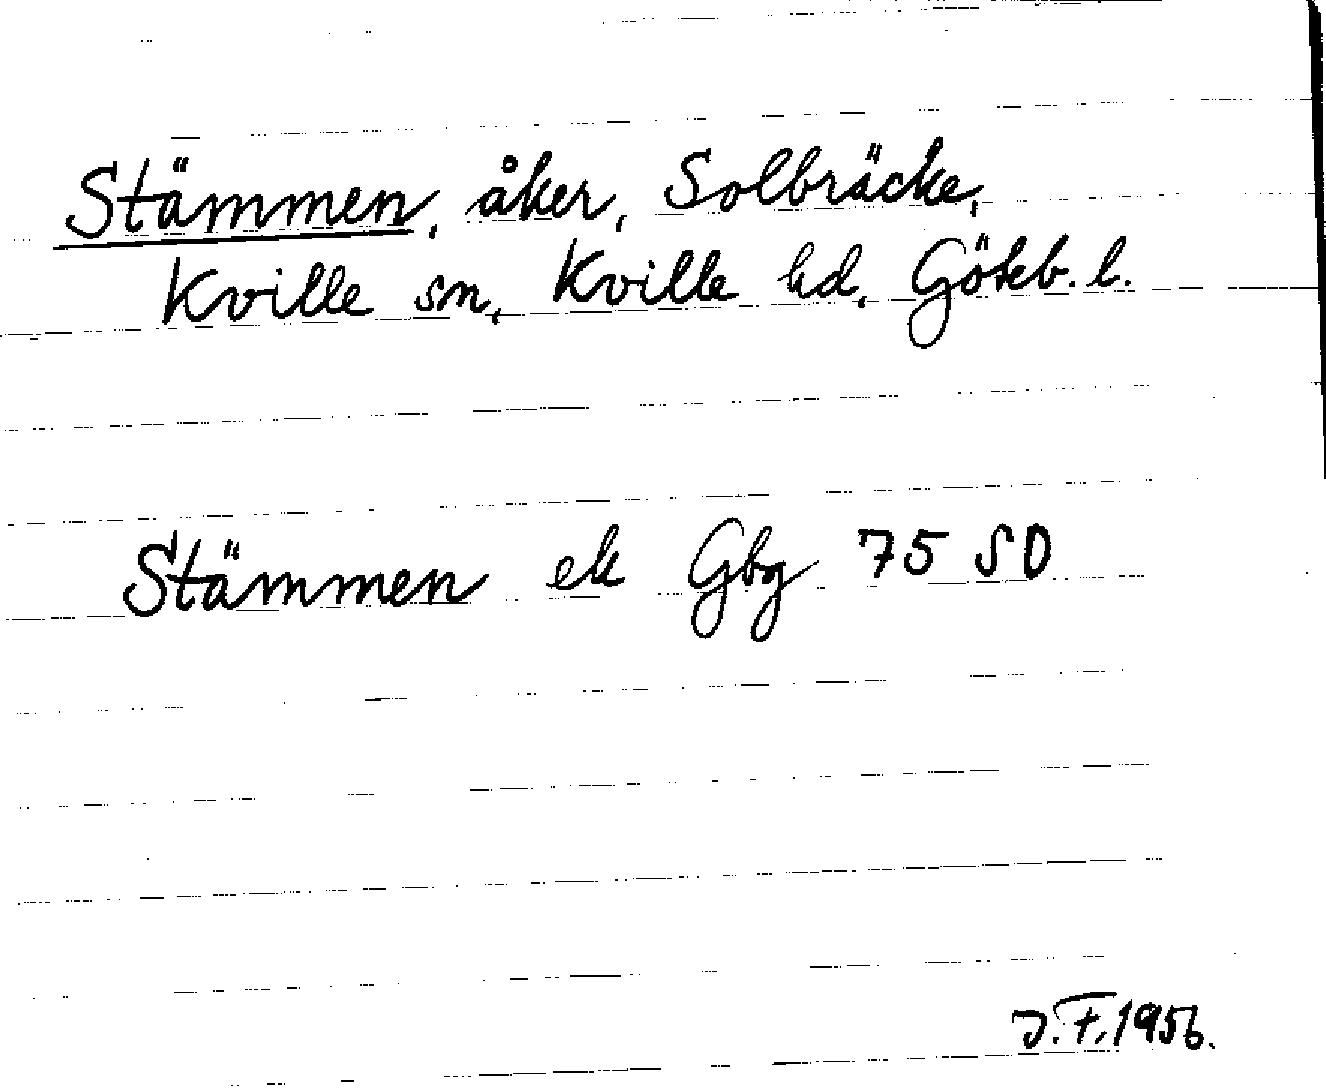 Stämmen, åker, Solbräcke,
Kville sn, Kville hd, Göteb. l.
Stämmen ek Gbg 75 SO
J.F. 1956.